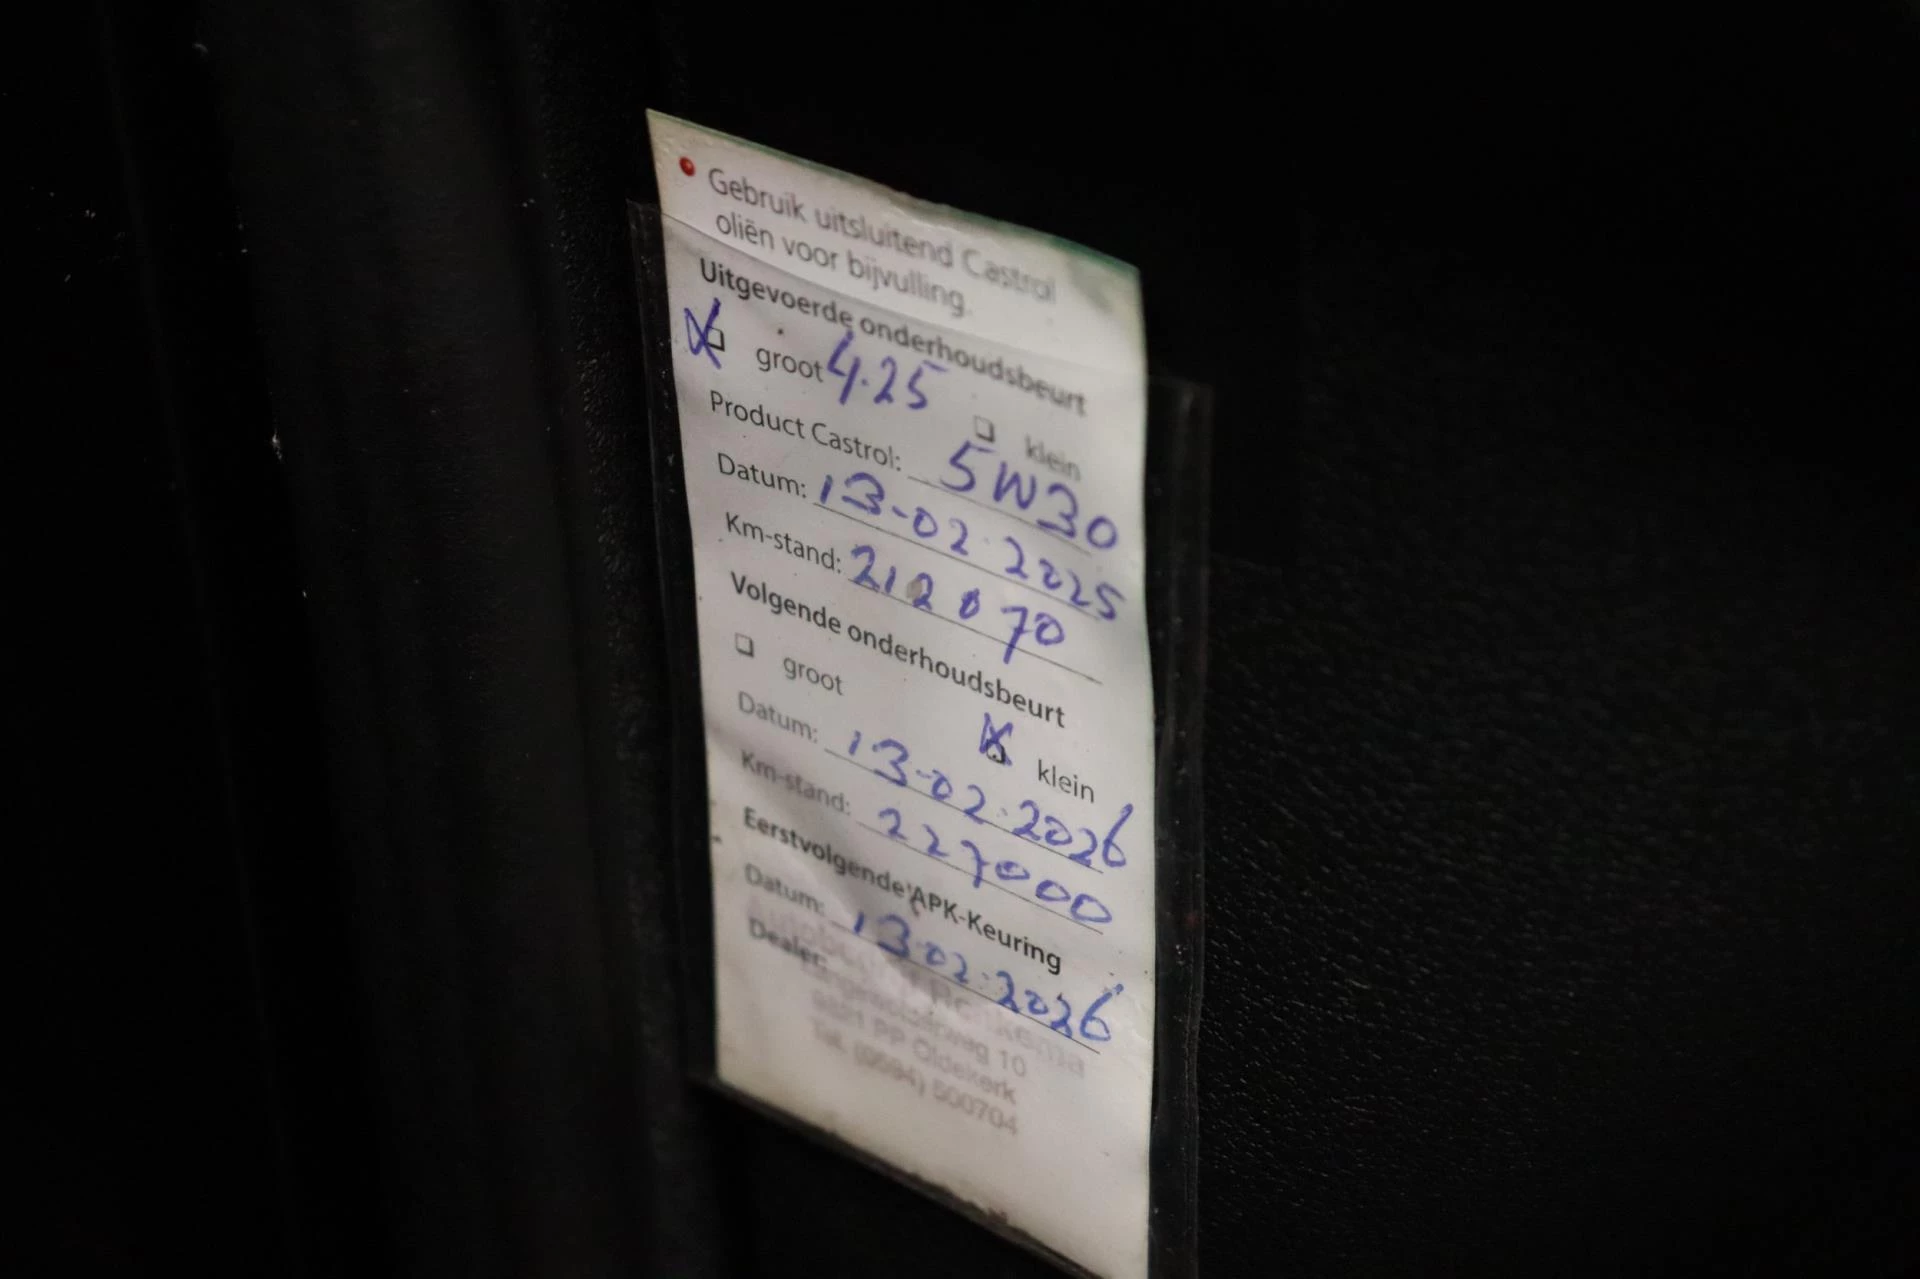 Gebruik uitsluitend Castrol
oliën voor bijvulling.
Uitgevoerde onderhoudsbeurt
groot 4.25
klein
Product Castrol: 5W30
Datum: 13-02-2025
Km-stand: 212070
Volgende onderhoudsbeurt
groot
klein
Datum: 13-02-2026
Km-stand: 227000
Eerstvolgende APK-Keuring
Datum: 13-02-2026
Dealer:
10
PP Oldekerk
Tel. (0594) 500704